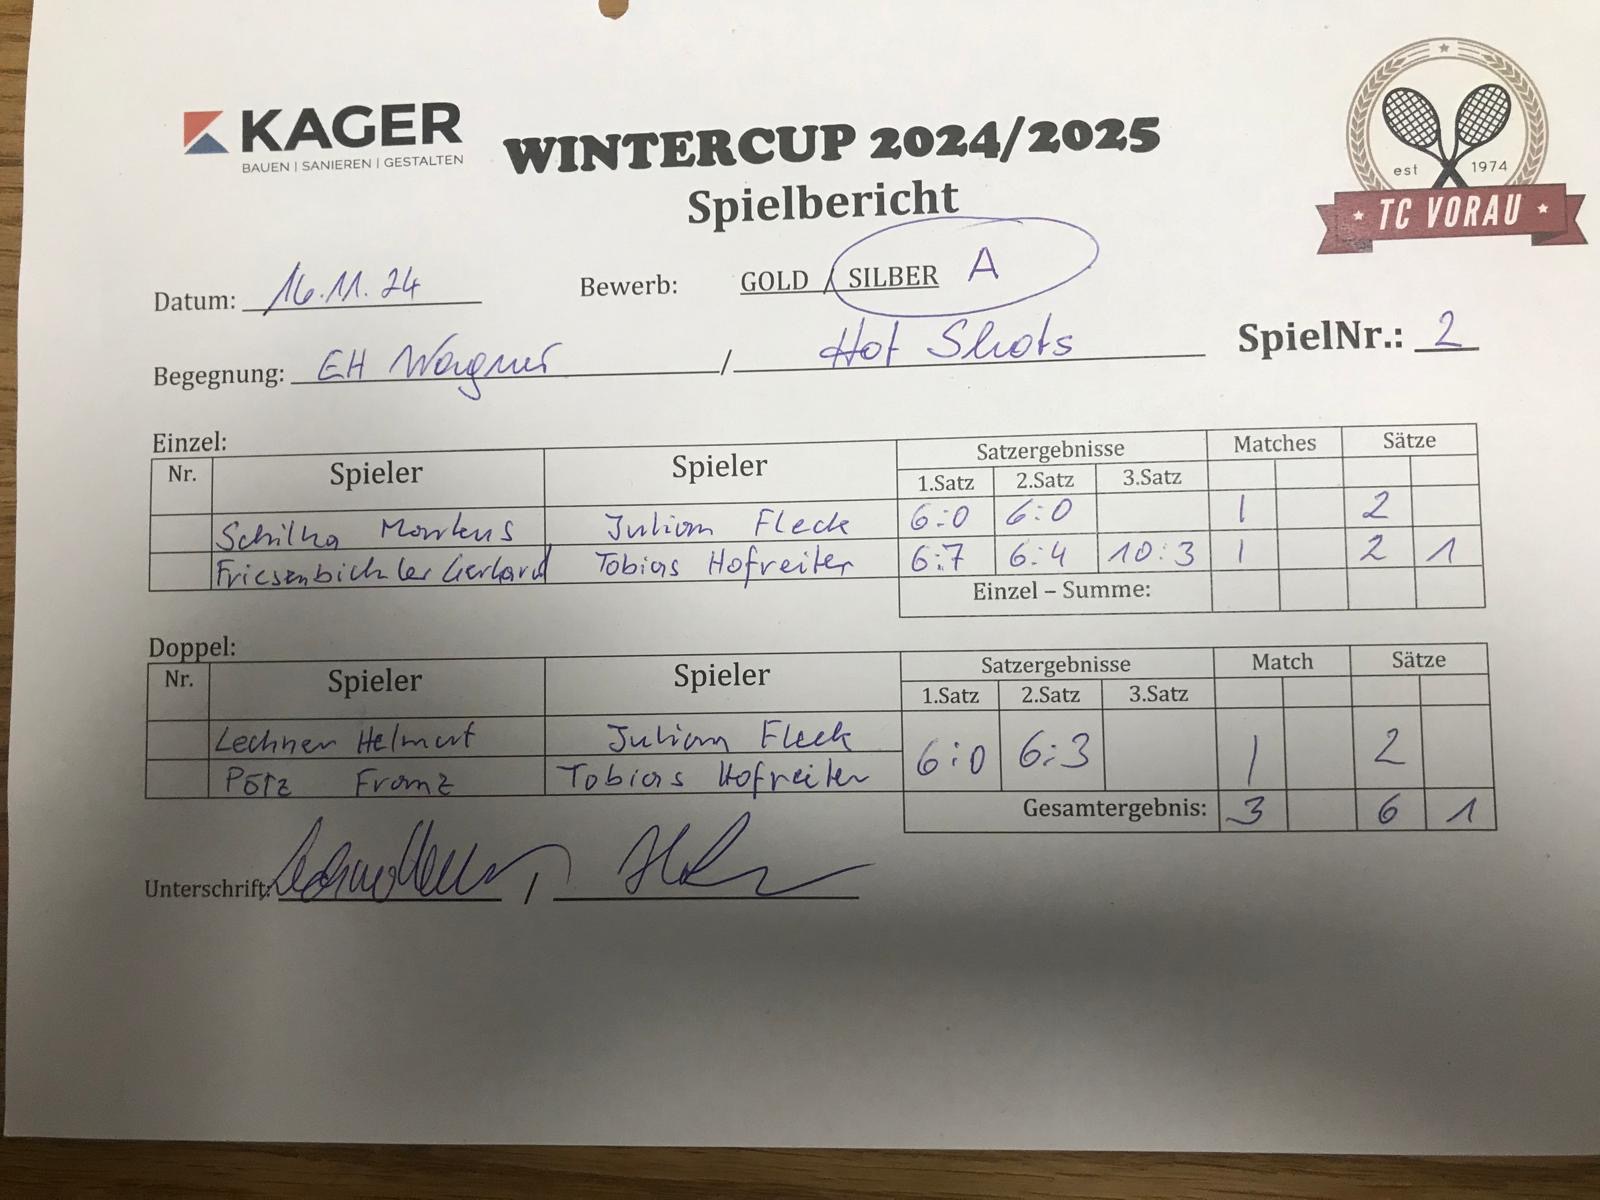 KAGER
BAUEN | SANIEREN | GESTALTEN
WINTERCUP 2024/2025
Spielbericht
est 1974
TC VORAU
Datum: 16.11.24 Bewerb: GOLD / SILBER A
Begegnung: EH Wagner / Hot Shots SpielNr.: 2
Einzel:
Nr. Spieler Spieler Satzergebnisse Matches Sätze
1.Satz 2.Satz 3.Satz
Schilka Markus Julian Fleck 6:0 6:0 1 2
Friesenbichler Gerhard Tobias Hofreiter 6:7 6:4 10:3 1 2 1
Einzel – Summe:
Doppel:
Nr. Spieler Spieler Satzergebnisse Match Sätze
1.Satz 2.Satz 3.Satz
Lechner Helmut Julian Fleck 6:0 6:3 1 2
Pötz Franz Tobias Hofreiter
Gesamtergebnis: 3 6 1
Unterschrift: /